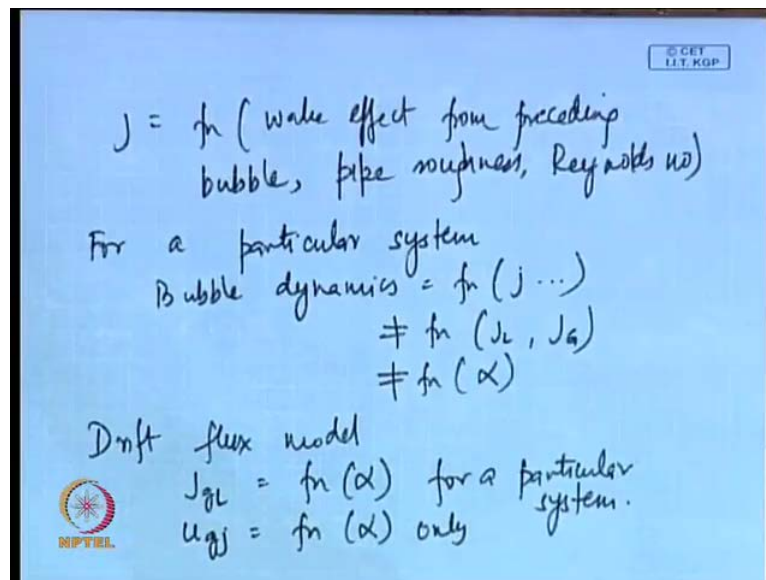 © CET
I.I.T. KGP
j = fn ( wake effect from preceding
bubble, pipe roughness, Reynolds no)
For a particular system
Bubble dynamics = fn (j ...)
≠ fn (JL, JG)
≠ fn (α)
Drift flux model
JgL = fn (α) for a particular
system.
ugj = fn (α) only
NPTEL